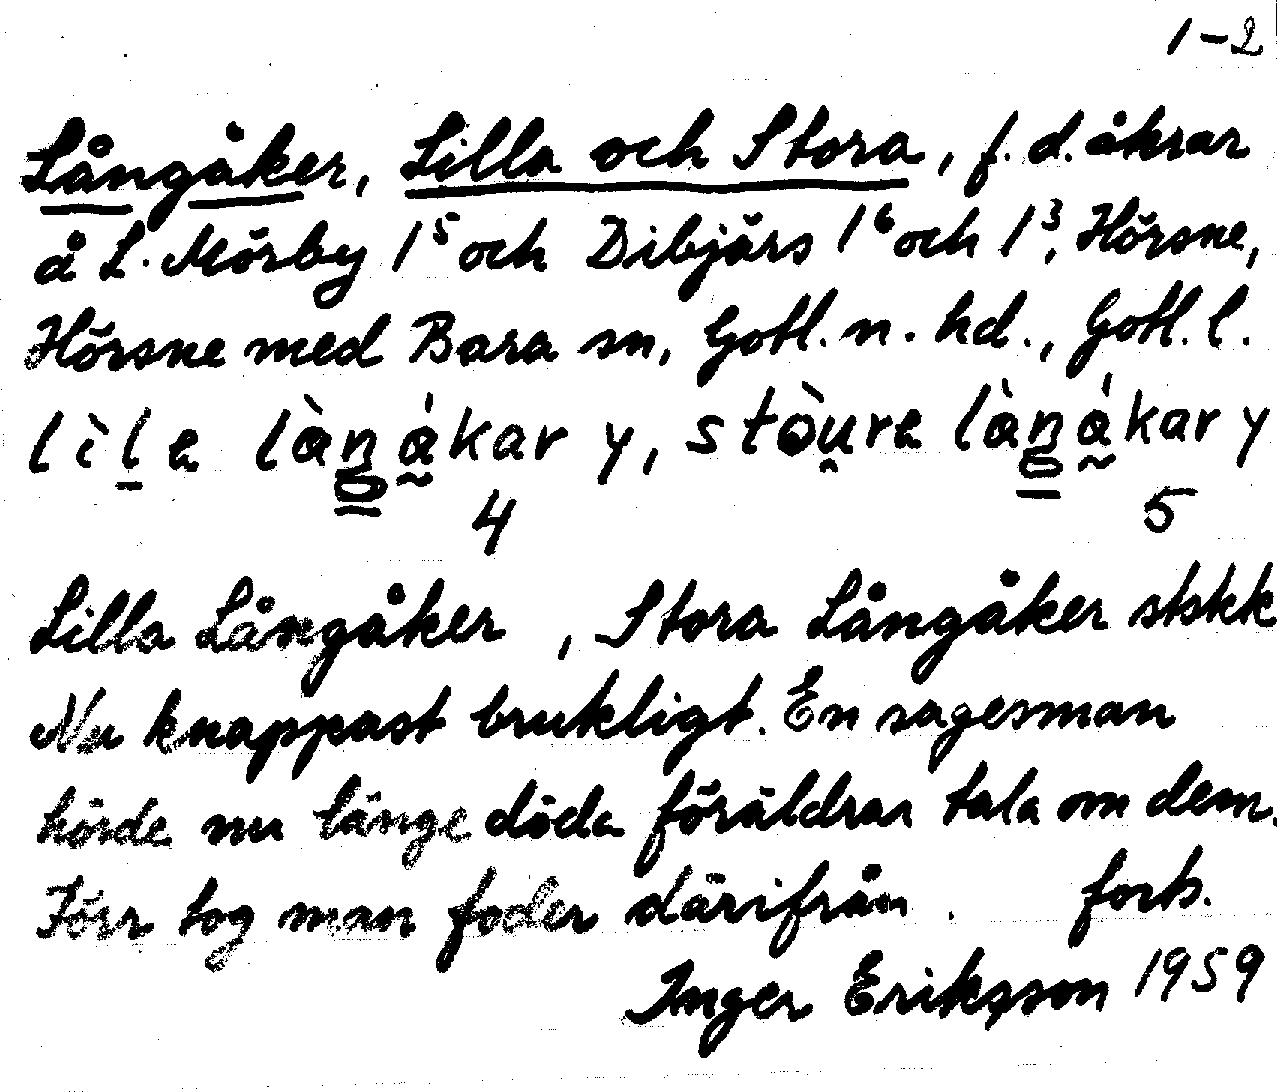 1-2
Långåker, Lilla och Stora, f.d. åkrar
å L. Mörby 1⁵ och Dibjärs 1⁶ och 1³, Hörsne,
Hörsne med Bara sn, Gotl. n. hd., Gotl. l.
lìle làŋákar y, stòu̯re làŋákar y
4 5
Lilla Långåker , Stora Långåker stskk
Nu knappast brukligt. En sagesman
hörde nu länge döda föräldrar tala om dem.
Förr tog man foder därifrån . forts.
Inger Eriksson 1959